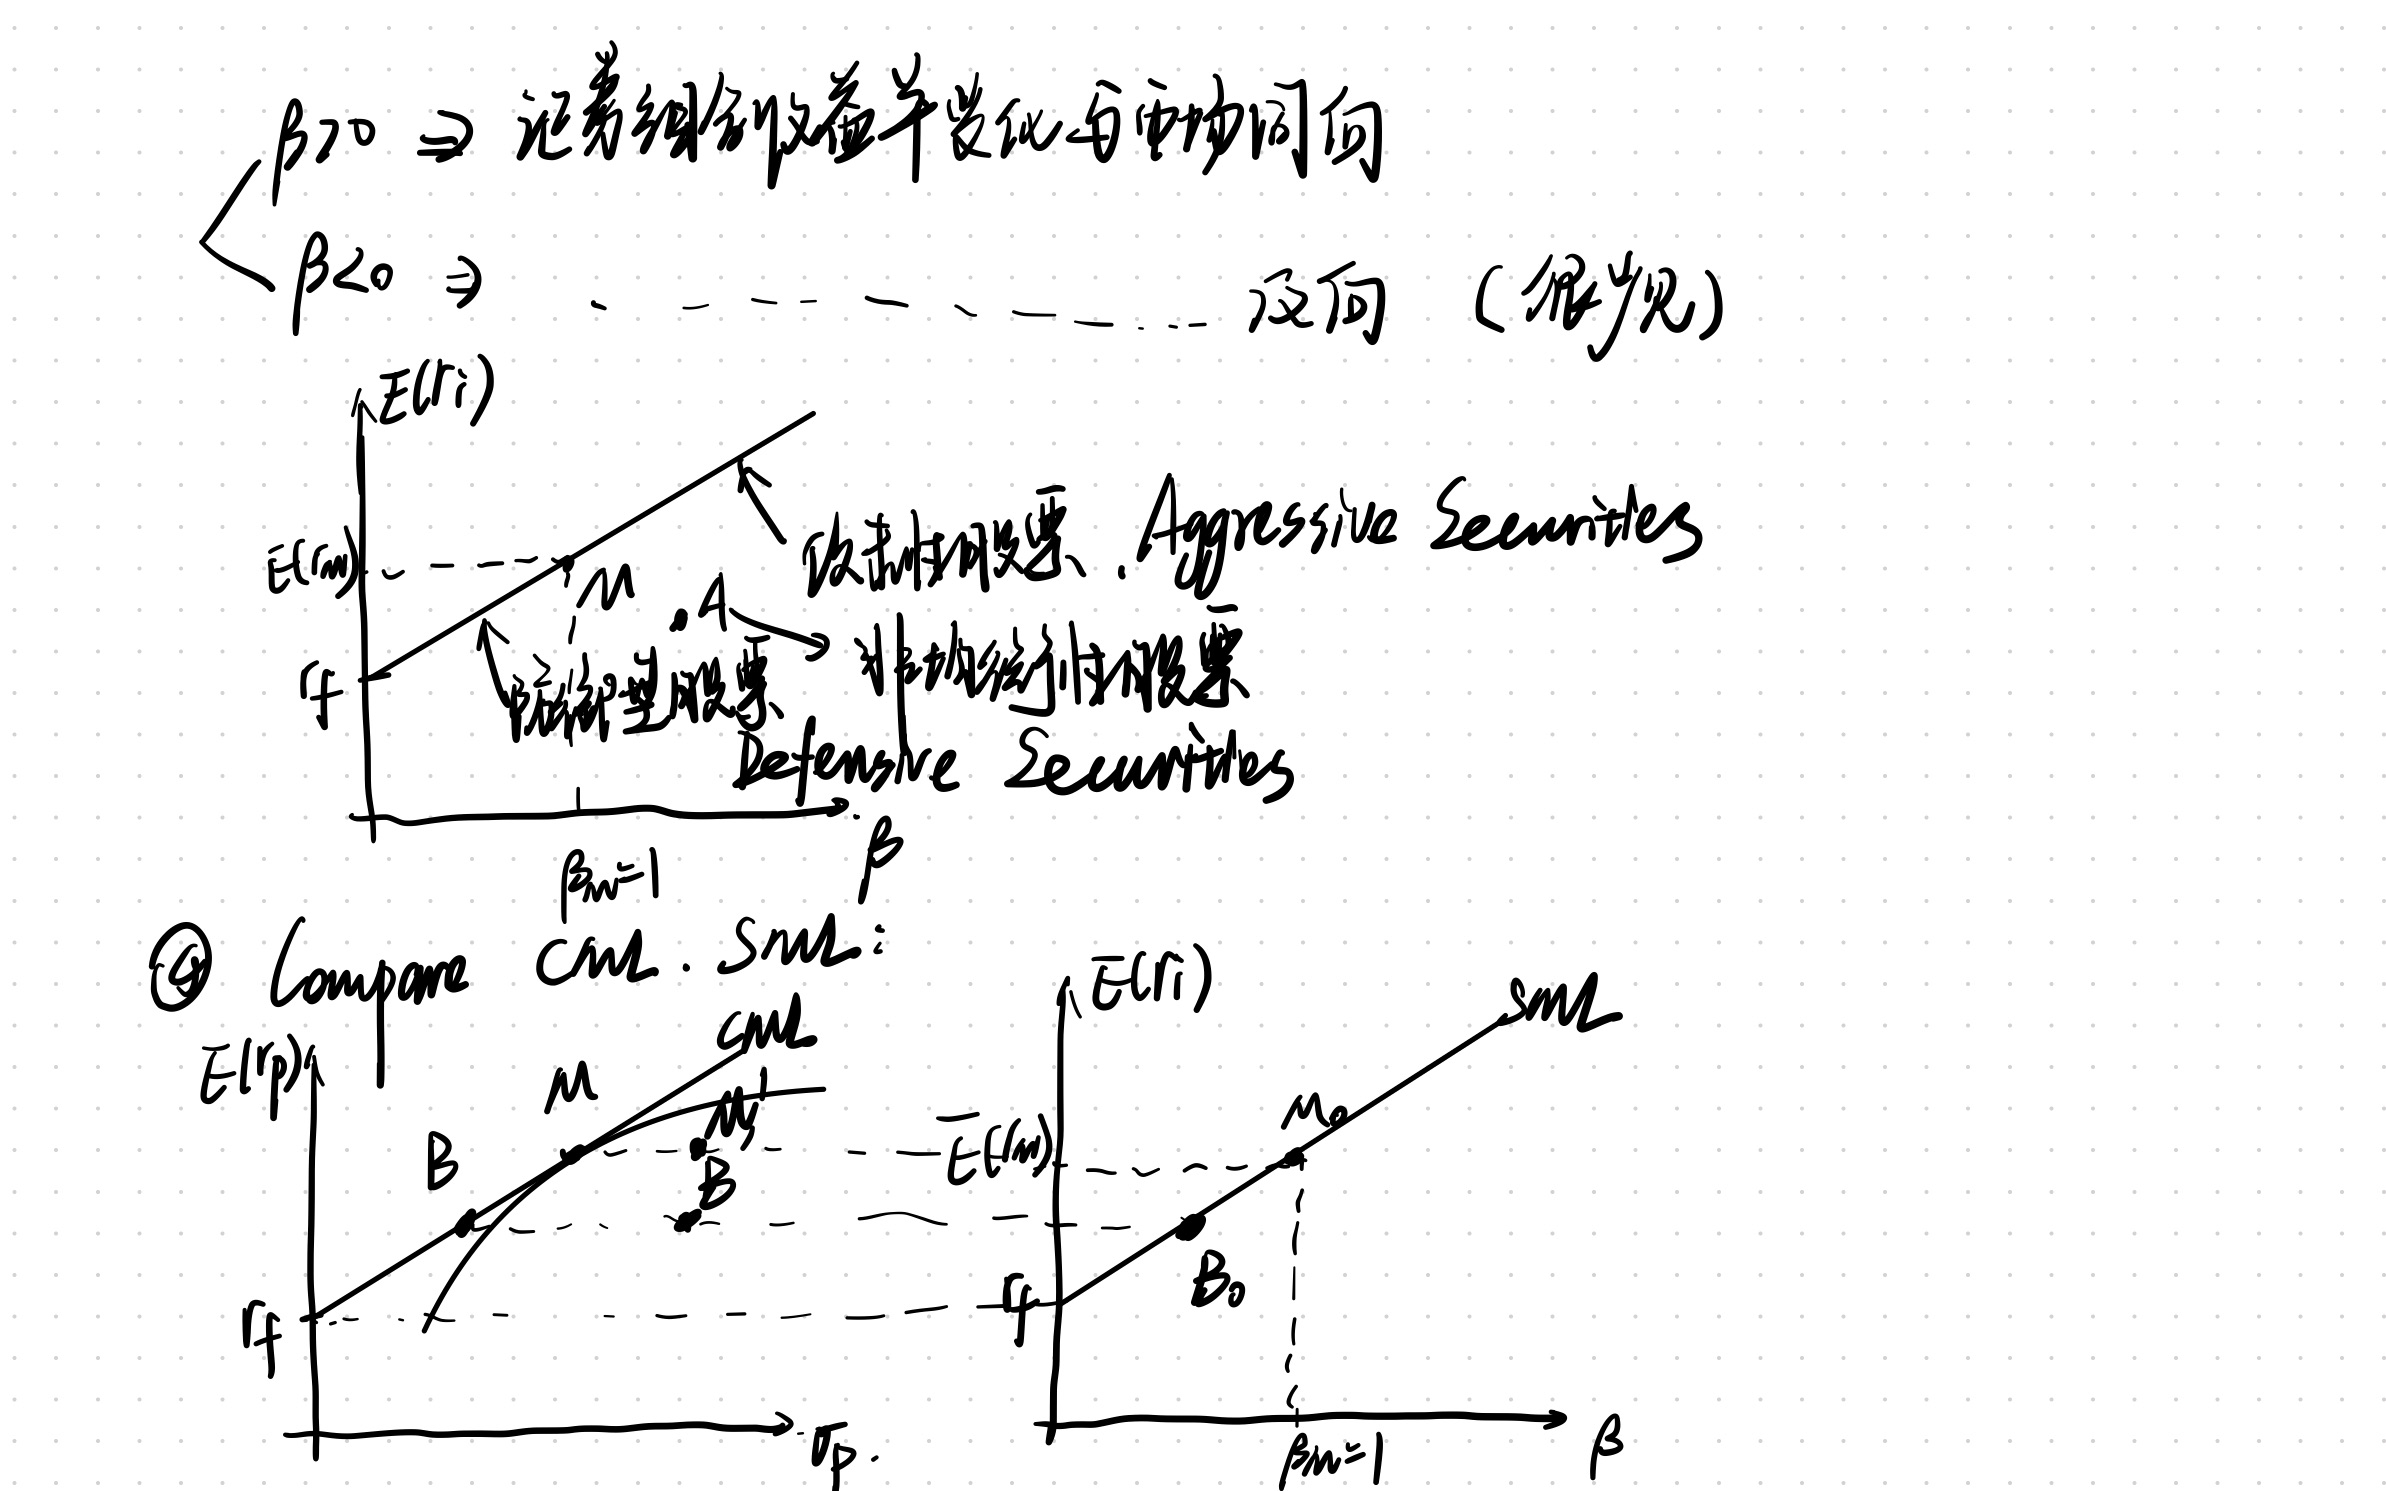 β>0 ⇒ 证券组合的收益率变化与市场同向
β<0 ⇒ 反向 (很少见)
E(ri)
E(rm)
M
进攻性投资. Aggressive Securities
.A
rf
防御性投资
Defensive Securities
βm=1
β
④ Compare CML . SML:
E(rp)
CML
M
M'
B
B'
rf
σp.
E(ri)
SML
E(rm)
M0
B0
rf
βm=1
β